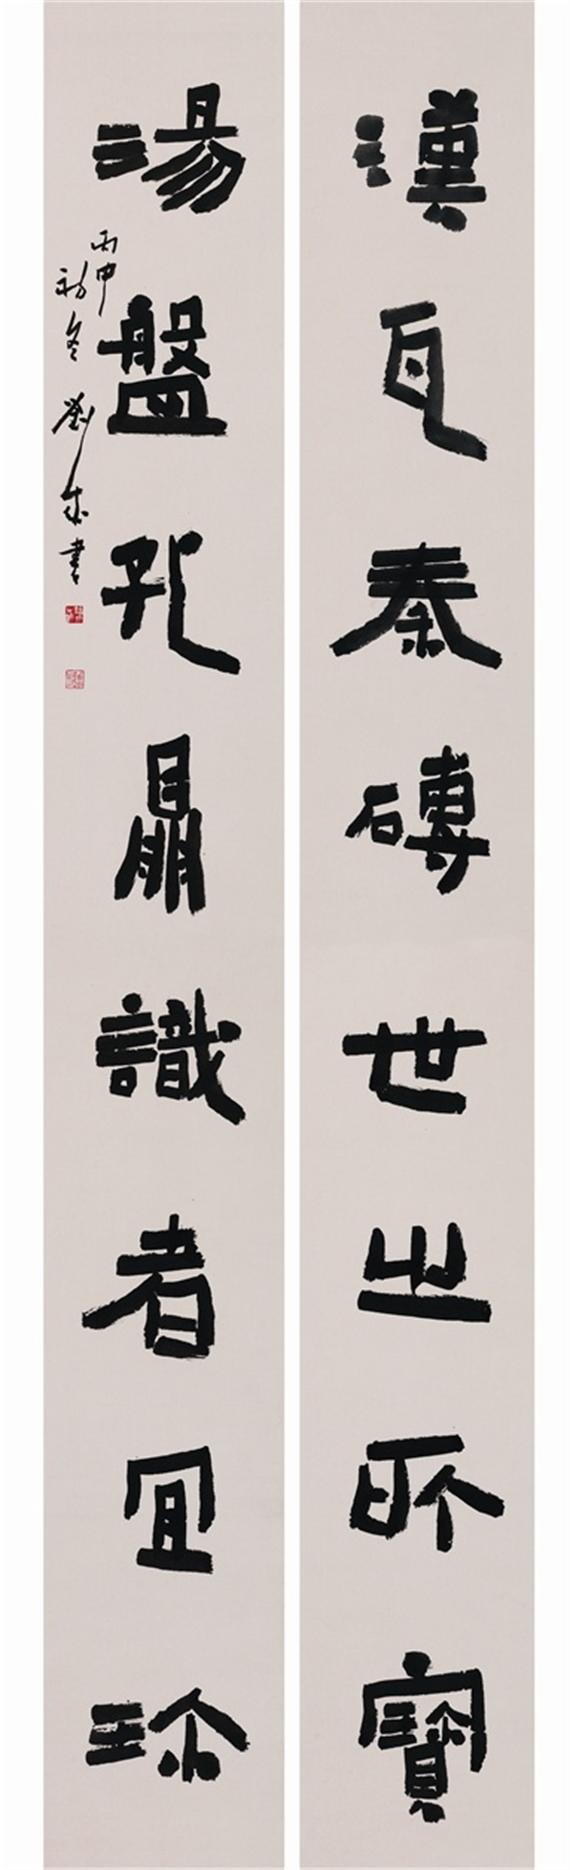 漢瓦秦磚世之所寶
湯盤孔鼎識者冝珎
丙申初冬劉成書